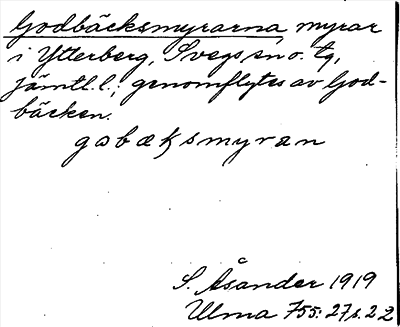 Godbäcksmyrarna myrar
i Ytterberg, Svegs sn o. tg,
Jämtl. l.; genomflytes av God-
bäcken.
gobæksmyran
S. Åsander 1919
Ulma 755:27 s. 22